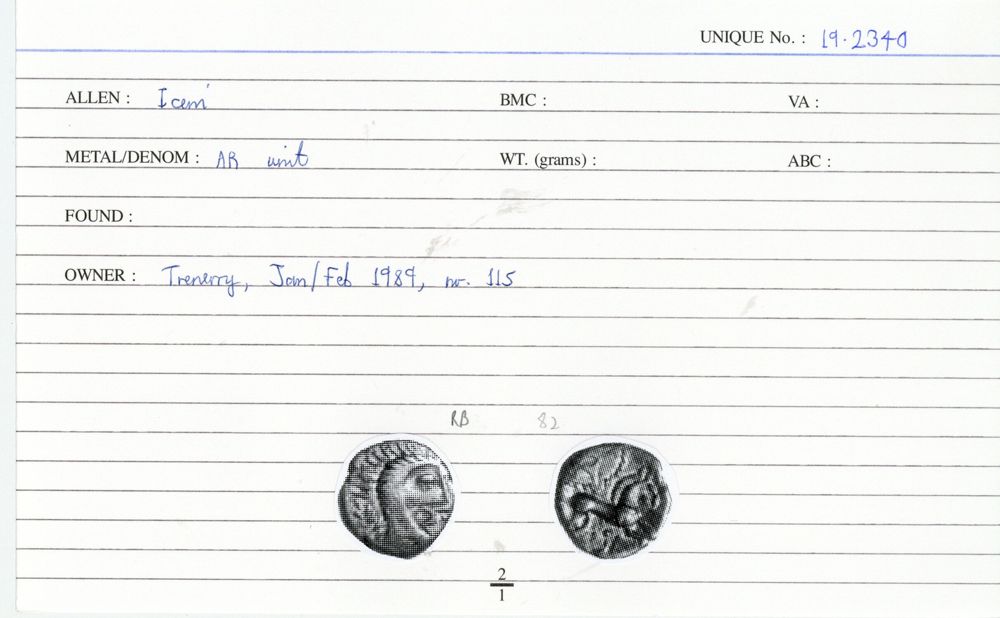 UNIQUE No. : 19.2340
ALLEN : Iceni BMC : VA :
METAL/DENOM : AR unit WT. (grams) : ABC :
FOUND :
OWNER : Trenerry, Jan/Feb 1989, nr. 115
RB 82
2
1